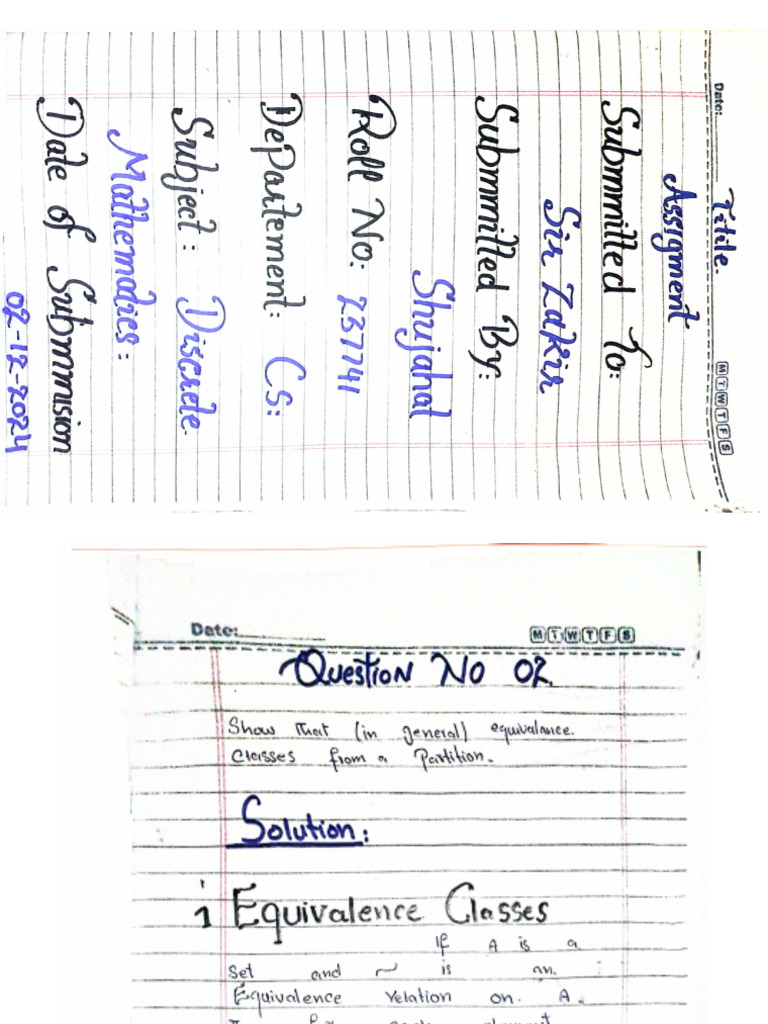 Date:
M T W T F S
Titile.
Assigment
Submmitted To:
Sir Zakir
Submmitted By:
Shujahat
Roll No: 237741
Departement: CS:
Subject: Discrete.
Mathematics:
Date of Submmision
02-12-2024
Date:
M T W T F S
Question No 02.
Show that (in general) equivalance.
Classes from a Partition.
Solution:
1 Equivalence Classes
If A is a
Set and ~ is an.
Equivalence relation on A.